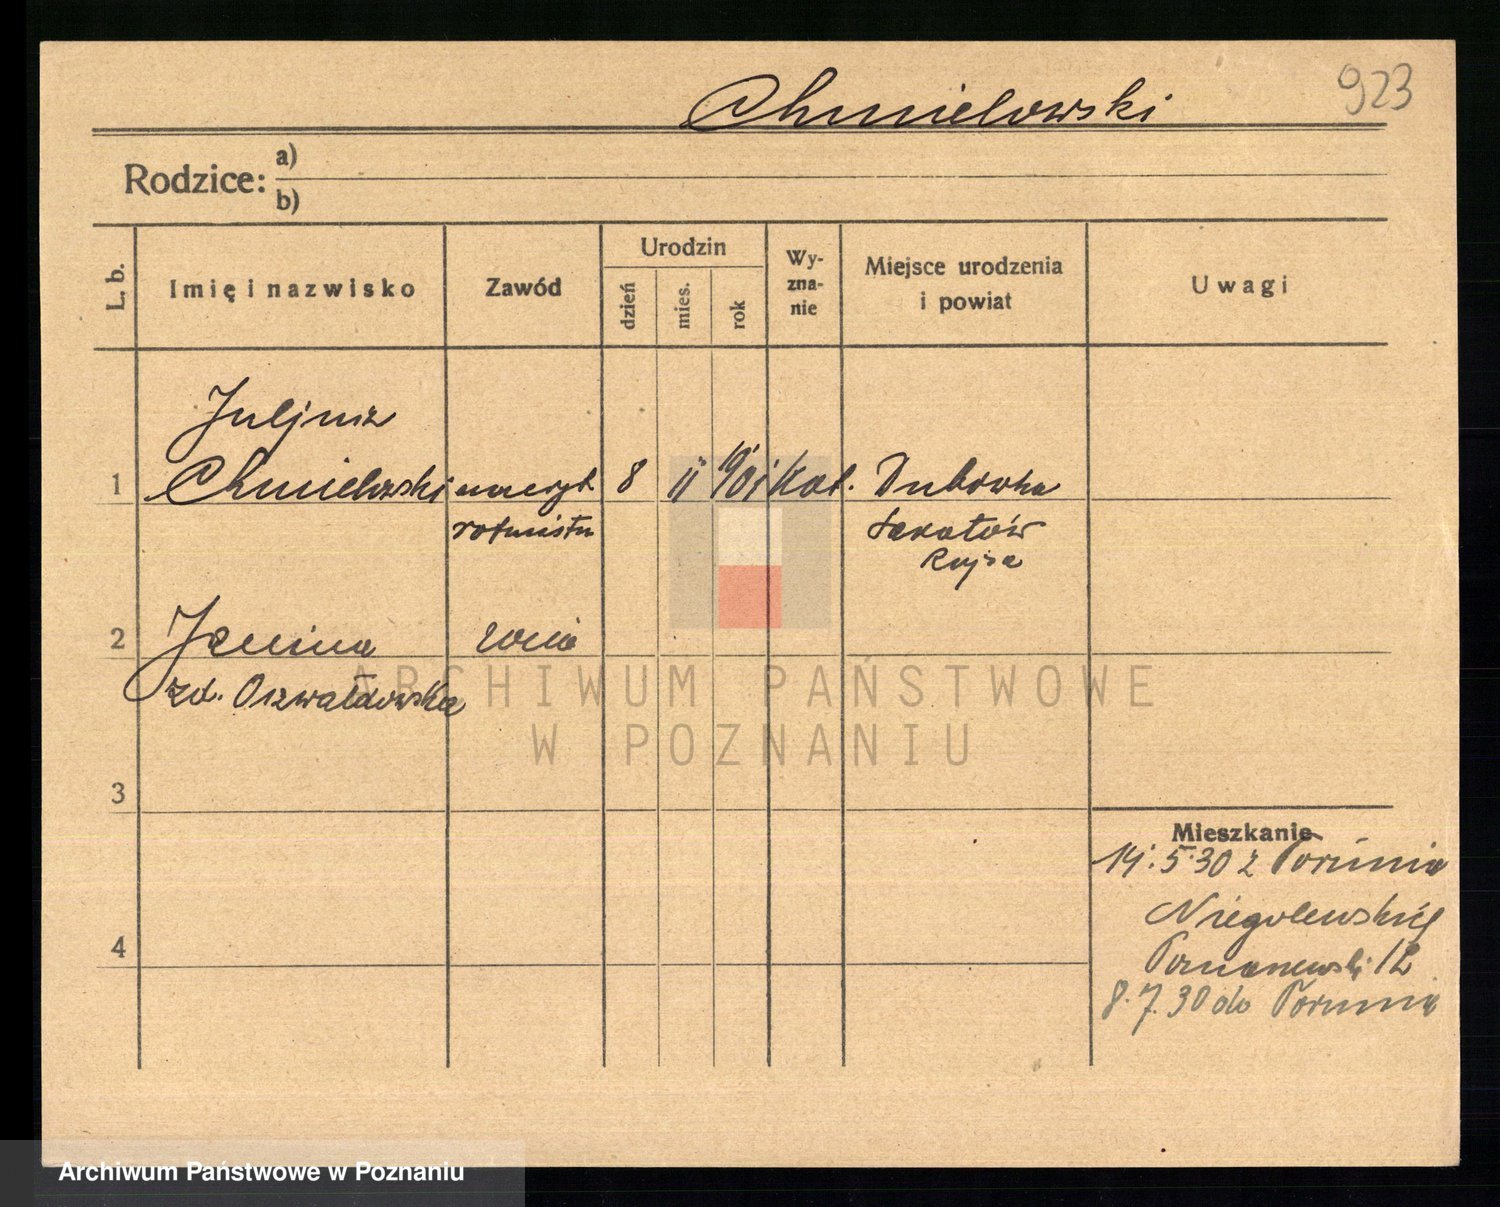 923
Chmielowski
Rodzice: a)
b)
L. b.
Imię i nazwisko
Zawód
Urodzin
dzień
mies.
rok
Wy-
zna-
nie
Miejsce urodzenia
i powiat
Uwagi
Juljusz
1 Chmielowski emeryt. 8 II 901 Kat. Dubowka
rotmistrz Saratów
Rosja
2 Janina żona
zd. Oszwałdowska
3
4
Mieszkanie
14.5.30 z Torunia
Niegolewskich
8.7.30 do Torunia
ARCHIWUM PAŃSTWOWE
W POZNANIU
Archiwum Państwowe w Poznaniu